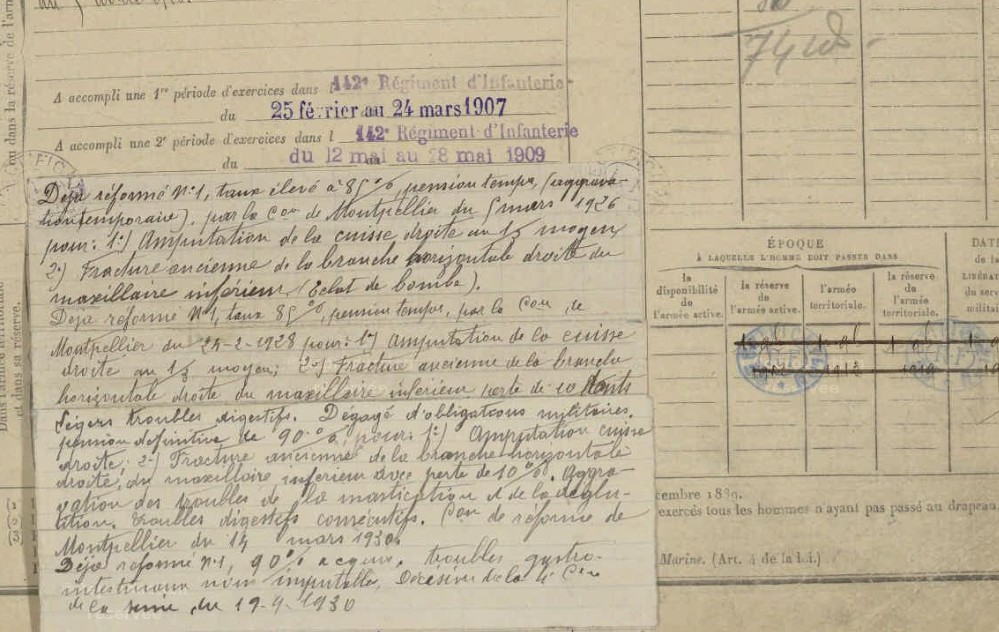 A accompli une 1re période d'exercices dans 142e Régiment d'Infanterie
du 25 février au 24 mars 1907
A accompli une 2e période d'exercices dans l 142e Régiment d'Infanterie
du 12 mai au 28 mai 1909
Déjà réformé N°1, taux élevé à 85 %, pension tempre, (aggrava-
tion temporaire), par la Con de Montpellier du 5 mars 1926
pour: 1°) Amputation de la cuisse droite au 1/3 moyen
2°) Fracture ancienne de la branche horizontale droite du
maxillaire inférieur (Eclat de bombe).
Déjà réformé N°1, taux 85 %, pension tempre, par la Con de
Montpellier du 24-2-1928 pour: 1°) Amputation de la cuisse
droite au 1/3 moyen; 2°) Fracture ancienne de la branche
horizontale droite du maxillaire inférieur perte de 10 dents
légers troubles digestifs. Dégagé d'obligations militaires.
pension définitive de 90 % pour: 1°) Amputation cuisse
droite; 2°) Fracture ancienne de la branche horizontale
droite, du maxillaire inférieur avec perte de 10 %. Aggra-
vation des troubles de la mastication et de la déglu-
tition. troubles digestifs consécutifs. Con de réforme de
Montpellier du 14 mars 1930.
Déjà réformé N°1, 90 % troubles gastro-
intestinaux non imputable. Décision de la Con
de la Seine du 19-4-1930
ou dans la réserve de l'arm
et dans sa réserve.
74
ÉPOQUE
À LAQUELLE L'HOMME DOIT PASSER DANS
la disponibilité de l'armée active.
la réserve de l'armée active.
l'armée territoriale.
la réserve de l'armée territoriale.
DATE
de la
LIBÉRAT
du serv
militai
cembre 1889.
exercés tous les hommes n'ayant pas passé au drapeau
Marine. (Art. 4 de la loi.)